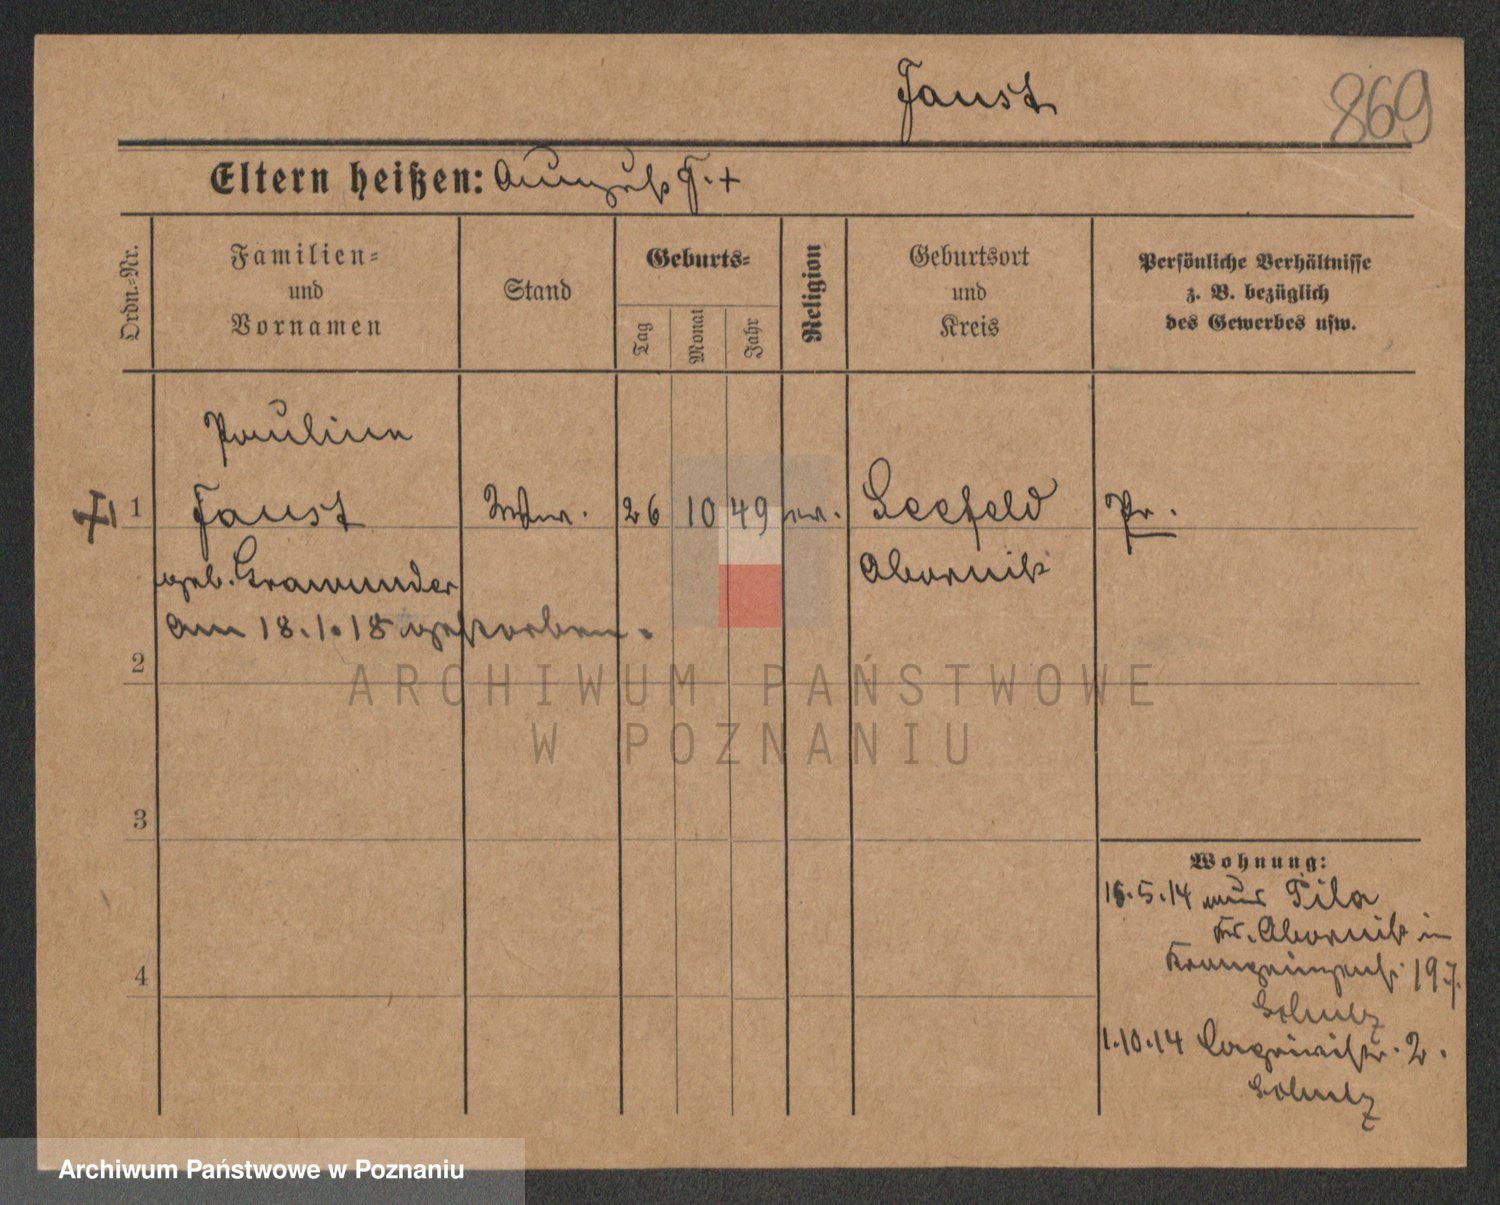 Faust
869
Eltern heißen: August F. +
Ordn.-Nr.
Familien-
und
Vornamen
Stand
Geburts-
Tag
Monat
Jahr
Religion
Geburtsort
und
Kreis
Persönliche Verhältnisse
z. B. bezüglich
des Gewerbes usw.
Pauline
1 Faust Wtw. 26 10 49 ev. Seefeld Pr.
geb. Grawunder Obornik
am 18.1.18 gestorben.
2
ARCHIWUM PAŃSTWOWE
W POZNANIU
3
4
Wohnung:
15.5.14 aus Pila
Kr. Obornik in
197.
1.10.14 2.
Archiwum Państwowe w Poznaniu